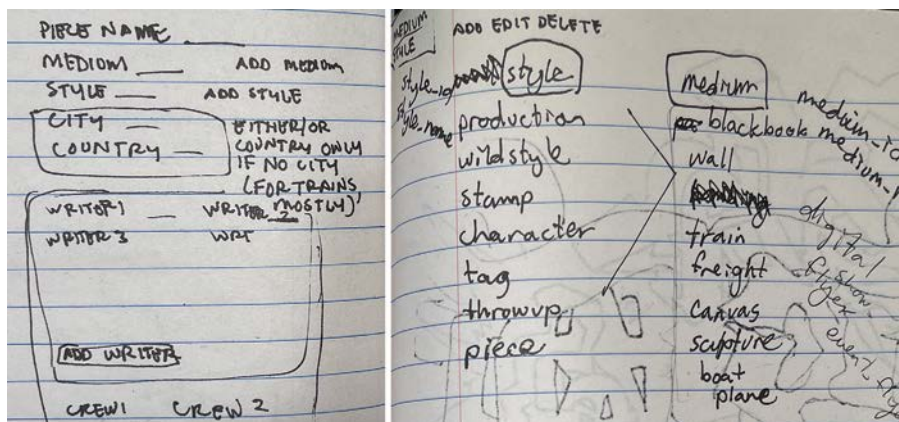 PIECE NAME
MEDIUM ADD MEDIUM
STYLE ADD STYLE
CITY
COUNTRY
EITHER/OR
COUNTRY ONLY
IF NO CITY
(FOR TRAINS,
MOSTLY)
WRITER1 WRITER 2
WRITER 3 WRT
ADD WRITER
CREW1 CREW 2
MEDIUM
STYLE
ADD EDIT DELETE
style_id
style_name
style
production
wildstyle
stamp
character
tag
throwup
piece
medium
blackbook
wall
train
freight
canvas
scupture
boat
plane
medium_id
medium_
digital
show
flyer
event